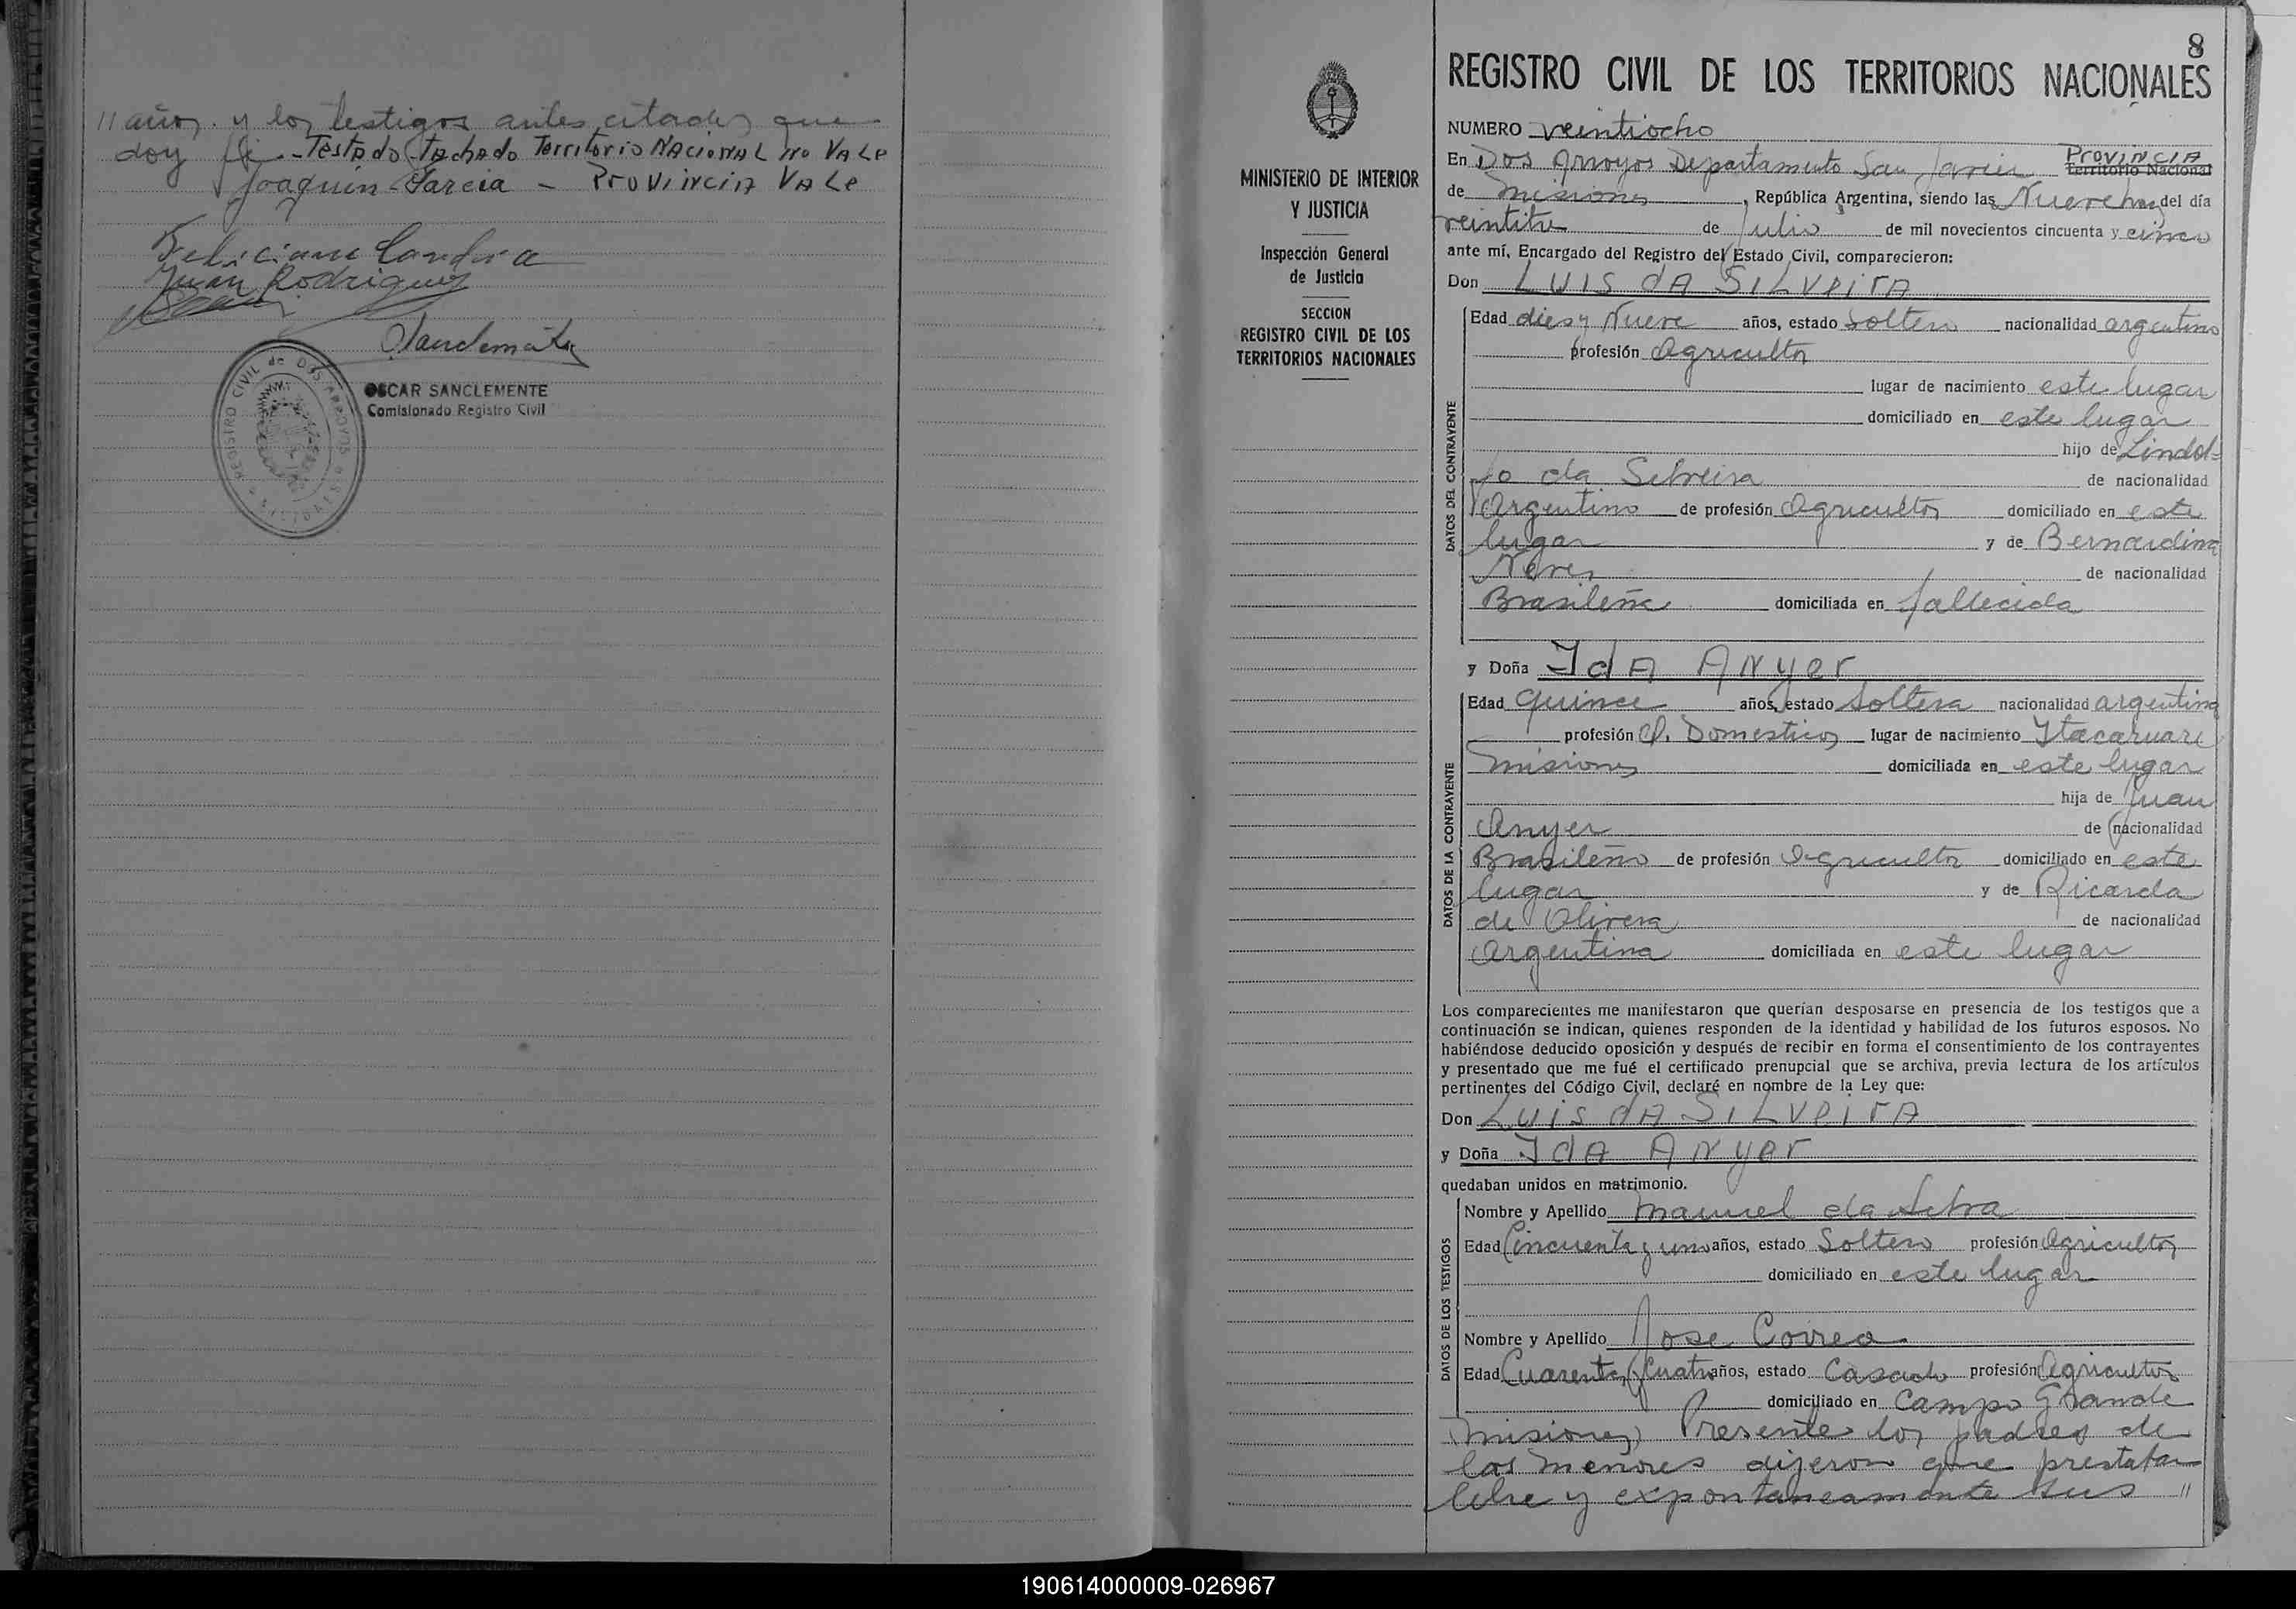 11 años. y los testigos antes citados que
doy fe - Testado (tachado Territorio NAcioNAL No VALe
Joaquin Garcia - ProviNciA VALe
Juan Rodriguez
OSCAR SANCLEMENTE
Comisionado Registro Civil
REGISTRO CIVIL de DOS ARROYOS
8
MINISTERIO DE INTERIOR
Y JUSTICIA
Inspección General
de Justicia
SECCION
REGISTRO CIVIL DE LOS
TERRITORIOS NACIONALES
REGISTRO CIVIL DE LOS TERRITORIOS NACIONALES
NUMERO veintiocho
En Dos Arroyos Departamento San Javier ProviNciA Territorio Nacional
de Misiones, República Argentina, siendo las Nueve horas del día
veintitres de Julio de mil novecientos cincuenta y cinco
ante mí, Encargado del Registro del Estado Civil, comparecieron:
Don LUIS dA SILVeirA
DATOS DEL CONTRAYENTE
Edad dies y Nueve años, estado Soltero nacionalidad argentino
profesión Agricultor
lugar de nacimiento este lugar
domiciliado en este lugar
hijo de Lindol=
fo da Silveira de nacionalidad
Argentino de profesión Agricultor domiciliado en este
lugar y de Bernardina
Neves de nacionalidad
Brasileña domiciliada en fallecida
y Doña IdA ANyer
DATOS DE LA CONTRAYENTE
Edad quince años, estado Soltera nacionalidad argentina
profesión Q. Domesticos lugar de nacimiento Itacaruare
Misiones domiciliada en este lugar
hija de Juan
Anyer de nacionalidad
Brasileño de profesión Agricultor domiciliado en este
lugar y de Ricarda
de Olivera de nacionalidad
Argentina domiciliada en este lugar
Los comparecientes me manifestaron que querían desposarse en presencia de los testigos que a
continuación se indican, quienes responden de la identidad y habilidad de los futuros esposos. No
habiéndose deducido oposición y después de recibir en forma el consentimiento de los contrayentes
y presentado que me fué el certificado prenupcial que se archiva, previa lectura de los artículos
pertinentes del Código Civil, declaré en nombre de la Ley que:
Don LUIS dA SILVeirA
y Doña IdA ANyer
quedaban unidos en matrimonio.
DATOS DE LOS TESTIGOS
Nombre y Apellido Manuel da Silva
Edad Cincuenta y uno años, estado Soltero profesión Agricultor
domiciliado en este lugar
Nombre y Apellido Jose Correa
Edad Cuarenta y Cuatro años, estado Casado profesión Agricultor
domiciliado en Campo Grande
Misiones) Presente los padres de
los menores dijeron que prestaban
libre y expontaneamente sus "
190614000009-026967